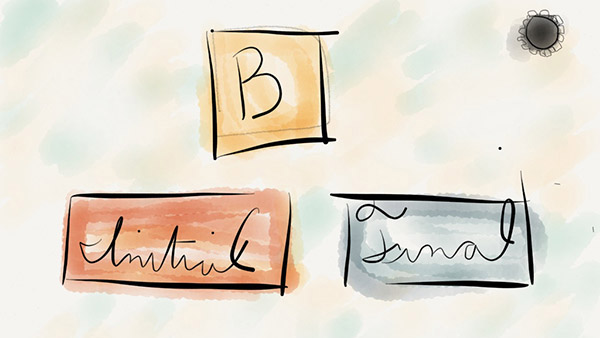 B
Initial
Final